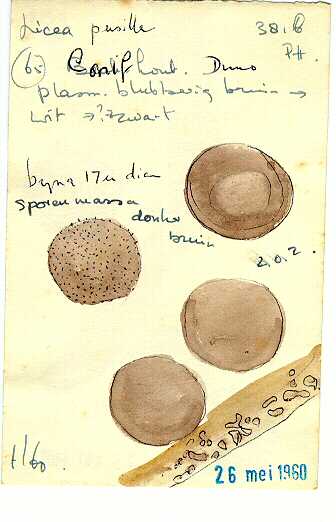 Licea pusilla
38.b
P.H.
(65) hout. Duno
plasm. blubberig bruin →
wit → ? zwart
byna 17u diam
sporenmassa
donker
bruin
2.0.2.
t/60.
26 mei 1960